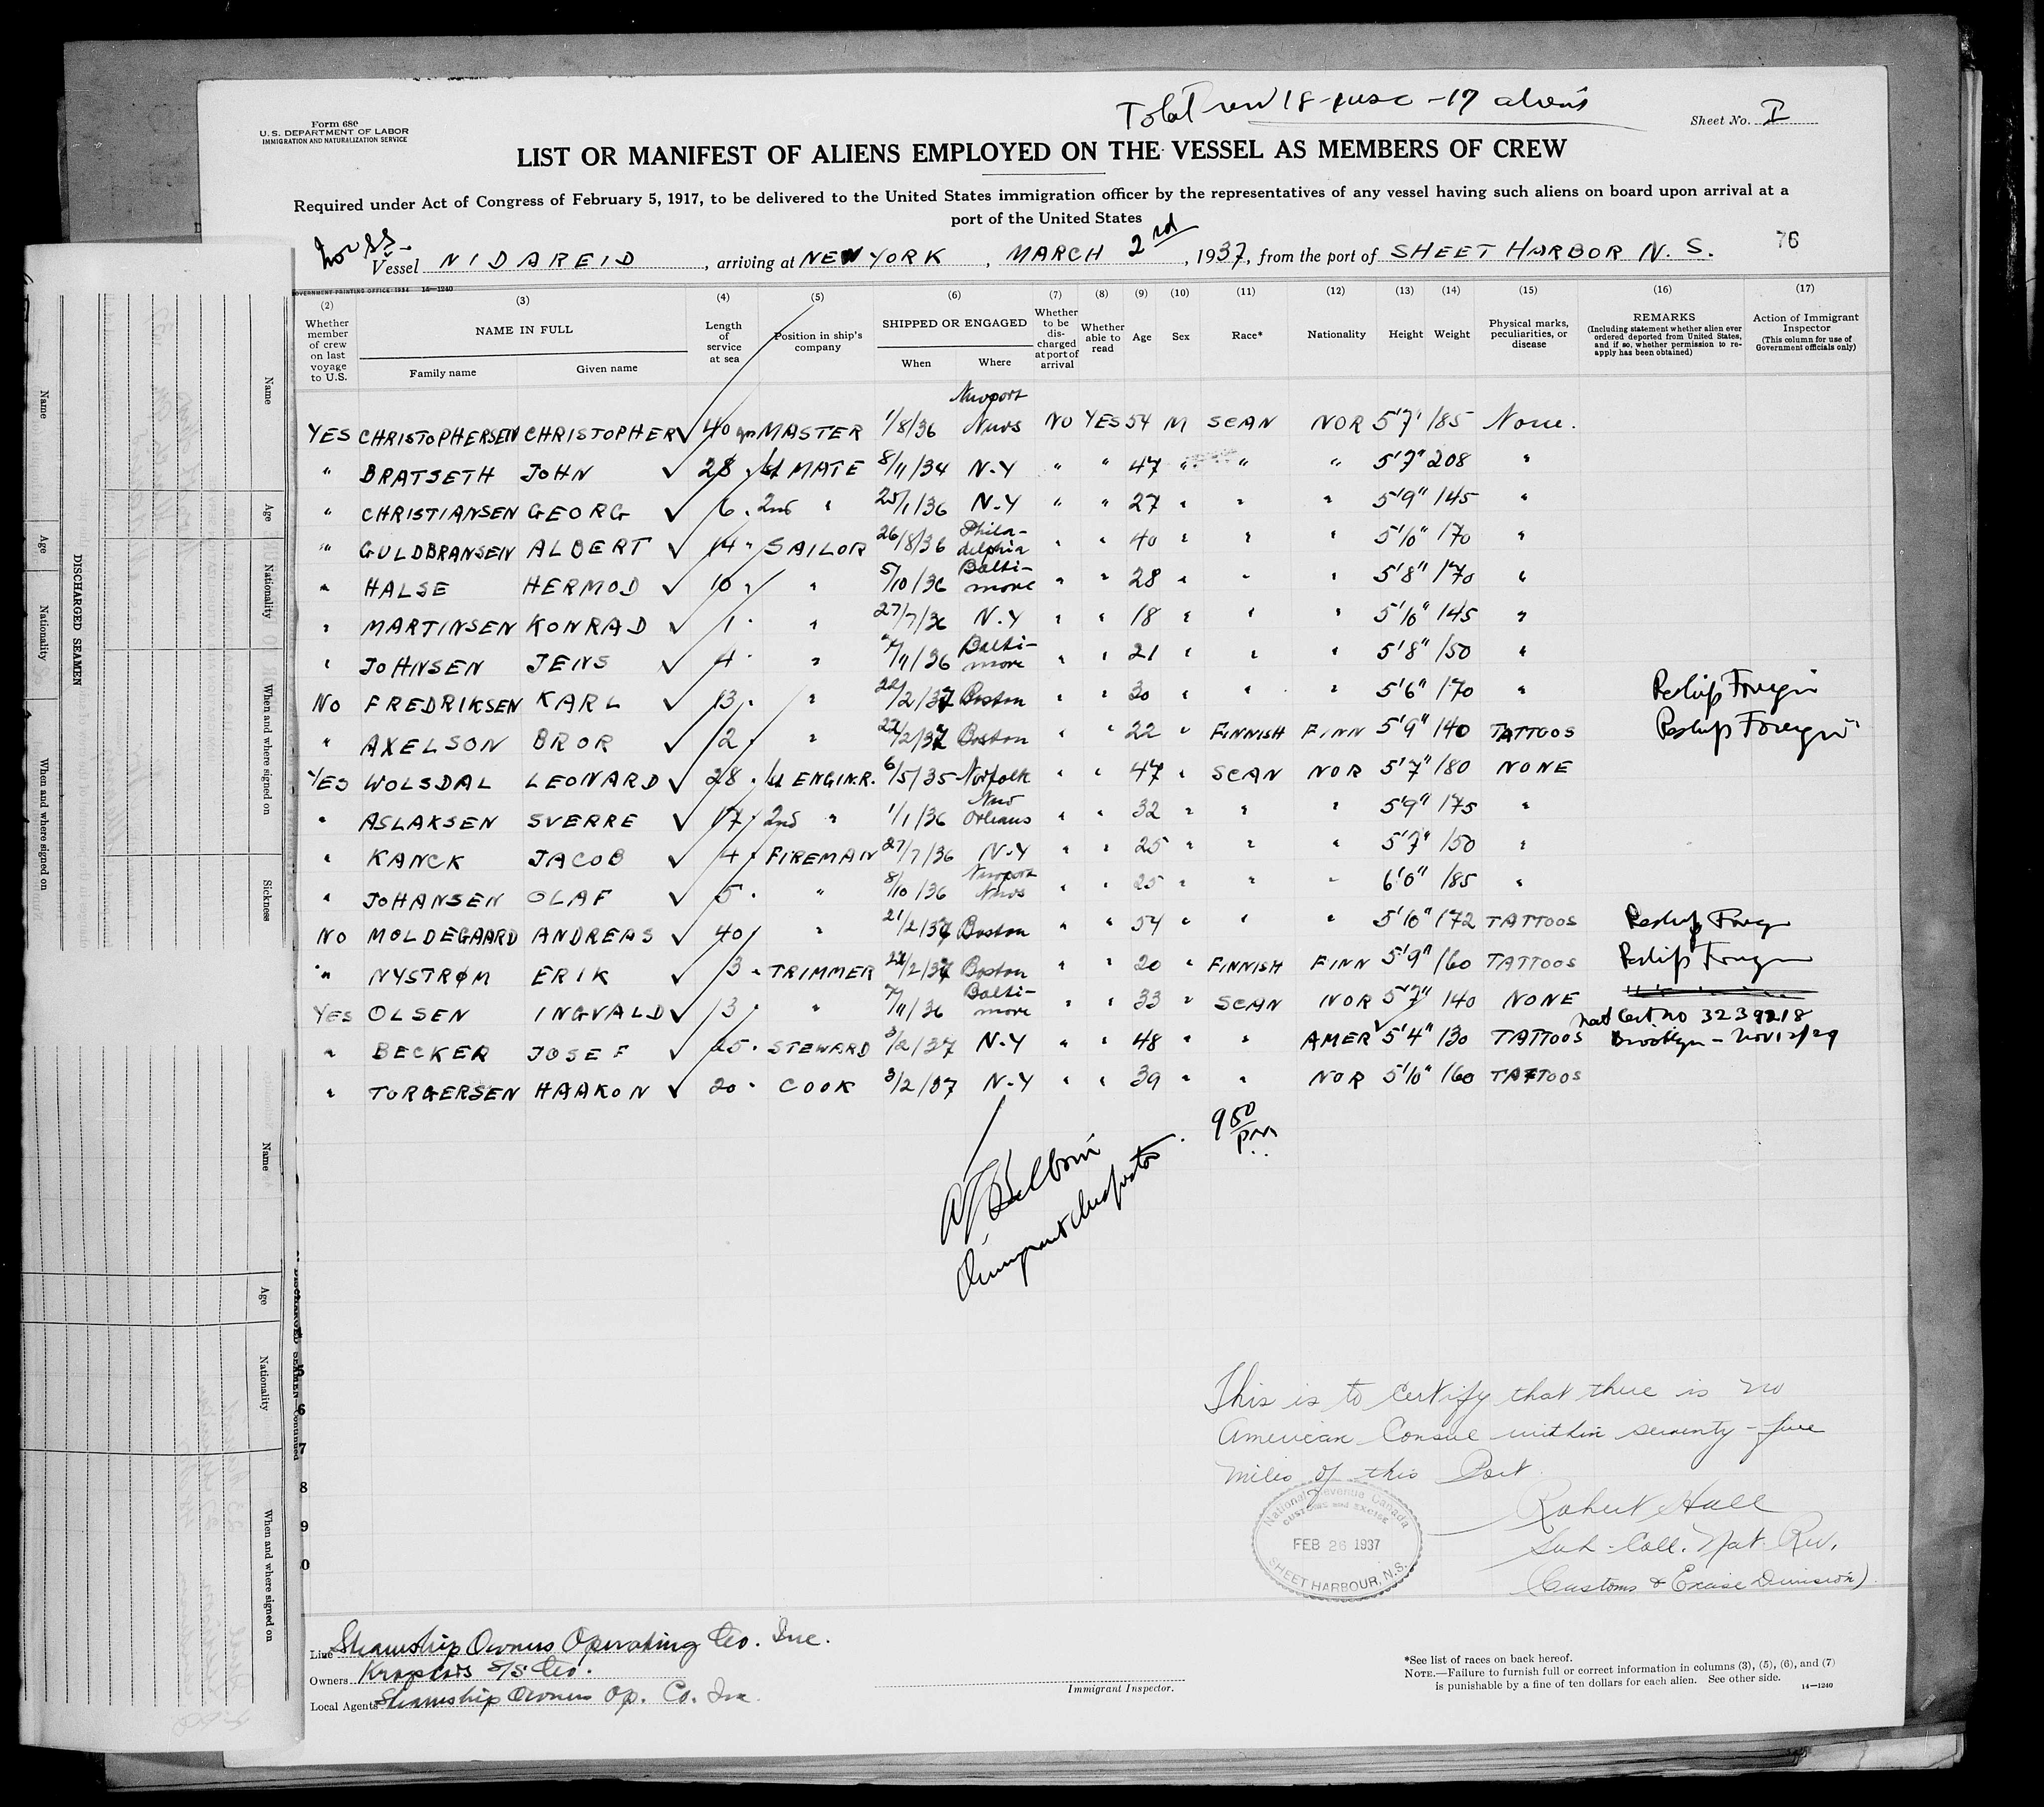 Form 680
U.S. DEPARTMENT OF LABOR
IMMIGRATION AND NATURALIZATION SERVICE
Total crew 18 - 1 usc - 17 aliens
Sheet No. I
LIST OR MANIFEST OF ALIENS EMPLOYED ON THE VESSEL AS MEMBERS OF CREW
Required under Act of Congress of February 5, 1917, to be delivered to the United States immigration officer by the representatives of any vessel having such aliens on board upon arrival at a
port of the United States
Nor SS.
Vessel NIDAREID, arriving at NEW YORK, MARCH 2nd, 1937, from the port of SHEET HARBOR N. S.
76
GOVERNMENT PRINTING OFFICE: 1934 14—1240
(2) (3) (4) (5) (6) (7) (8) (9) (10) (11) (12) (13) (14) (15) (16) (17)
Whether member of crew on last voyage to U.S.
NAME IN FULL
Family name
Given name
Length of service at sea
Position in ship's company
SHIPPED OR ENGAGED
When
Where
Whether to be discharged at port of arrival
Whether able to read
Age
Sex
Race*
Nationality
Height
Weight
Physical marks, peculiarities, or disease
REMARKS
(Including statement whether alien ever ordered deported from United States, and if so, whether permission to reapply has been obtained)
Action of Immigrant Inspector
(This column for use of Government officials only)
YES CHRISTOPHERSEN CHRISTOPHER ✓ 40 yrs MASTER 1/8/36 Newport News NO YES 54 M SCAN NOR 5'7" 185 None.
" BRATSETH JOHN ✓ 28 " 1st MATE 8/11/34 N.Y " " 47 " " " 5'7" 208 "
" CHRISTIANSEN GEORG ✓ 6 " 2nd " 25/1/36 N.Y " " 27 " " " 5'9" 145 "
" GULDBRANSEN ALBERT ✓ 14 " SAILOR 26/8/36 Philadelphia " " 40 " " " 5'10" 170 "
" HALSE HERMOD ✓ 10 " " 5/10/36 Baltimore " " 28 " " " 5'8" 170 "
" MARTINSEN KONRAD ✓ 1 " " 27/7/36 N.Y " " 18 " " " 5'10" 145 "
" JOHNSEN JENS ✓ 4 " " 7/11/36 Baltimore " " 21 " " " 5'8" 150 "
NO FREDRIKSEN KARL ✓ 13 " " 22/2/37 Boston " " 30 " " " 5'6" 170 " Reship Foreign
" AXELSON BROR ✓ 2 " " 22/2/37 Boston " " 22 " FINNISH FINN 5'9" 140 TATTOOS Reship Foreign
YES WOLSDAL LEONARD ✓ 28 " 1st ENGINR. 6/5/35 Norfolk " " 47 " SCAN NOR 5'7" 180 NONE
" ASLAKSEN SVERRE ✓ 17 " 2nd " 1/1/36 New Orleans " " 32 " " " 5'9" 175 "
" KANCK JACOB ✓ 4 " FIREMAN 27/7/36 N.Y " " 25 " " " 5'7" 150 "
" JOHANSEN OLAF ✓ 5 " " 8/10/36 Newport News " " 25 " " " 6'0" 185 "
NO MOLDEGAARD ANDREAS ✓ 40 " " 21/2/37 Boston " " 54 " " " 5'10" 172 TATTOOS Reship Foreign
" NYSTRØM ERIK ✓ 3 " TRIMMER 22/2/37 Boston " " 20 " FINNISH FINN 5'9" 160 TATTOOS Reship Foreign
YES OLSEN INGVALD ✓ 13 " " 7/11/36 Baltimore " " 33 " SCAN NOR 5'7" 140 NONE
Nat Cert no 3239218
" BECKER JOSEF ✓ 25 " STEWARD 3/2/37 N.Y " " 48 " " AMER ✓ 5'4" 130 TATTOOS Brooklyn - Nov 12/29
" TORGERSEN HAAKON ✓ 20 " COOK 3/2/37 N.Y " " 39 " " NOR 5'10" 160 TATTOOS
9 50 PM
Immigrant Inspector
This is to certify that there is no
American Consul within seventy-five
miles of this Port.
Robert Hall
Sub-Coll. Nat. Rev.
(Customs & Excise Division)
National Revenue Canada
CUSTOMS and EXCISE
FEB 26 1937
SHEET HARBOUR, N.S.
Line Steamship Owners Operating Co. Inc.
Owners S/S Co.
Local Agents Steamship Owners Op. Co. Inc.
Immigrant Inspector.
*See list of races on back hereof.
NOTE.—Failure to furnish full or correct information in columns (3), (5), (6), and (7)
is punishable by a fine of ten dollars for each alien. See other side.
14—1240
DISCHARGED SEAMEN
Name
Age
Nationality
When and where signed on
Name
Age
Nationality
When and where signed on
Sickness
Name
Age
Nationality
When and where signed on
DISCHARGED SEAMEN—Continued
5
6
7
8
9
0